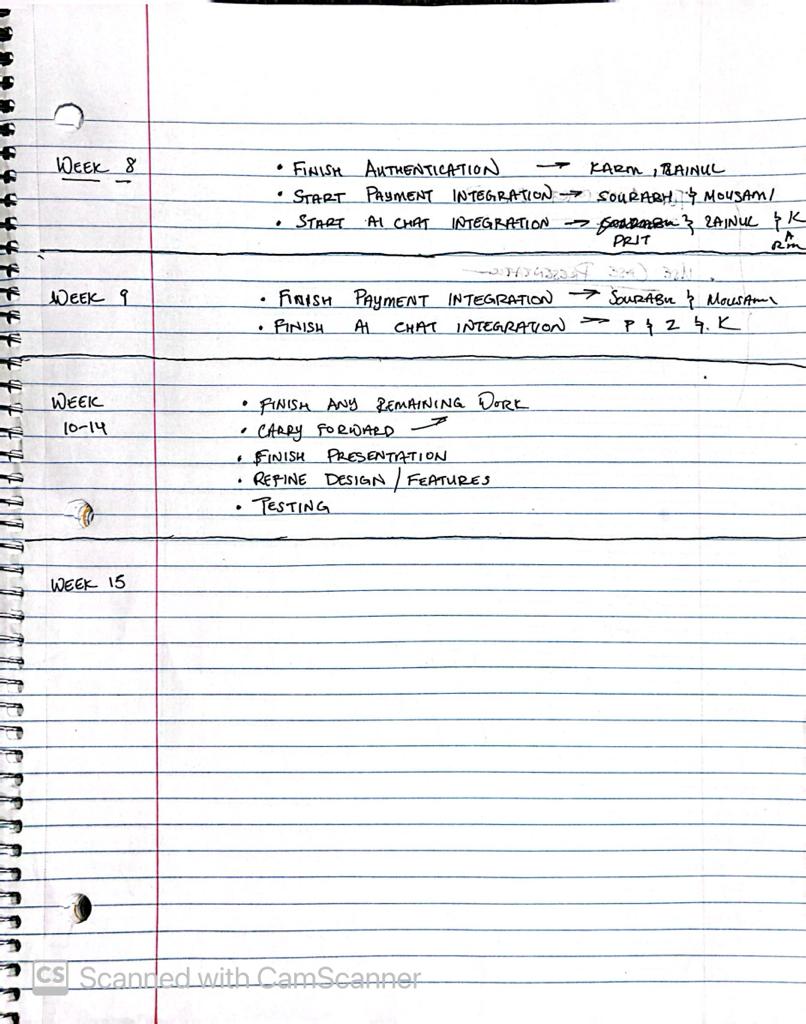 WEEK 8 • FINISH AUTHENTICATION → KARM, ZAINUL
• START PAYMENT INTEGRATION → SOURABH & MOUSAMI
• START AI CHAT INTEGRATION → & ZAINUL & K
PRIT ARM
USE CASE PRESENTATION
WEEK 9 • FINISH PAYMENT INTEGRATION → SOURABH & MOUSAMI
• FINISH AI CHAT INTEGRATION → P & Z & K
WEEK • FINISH ANY REMAINING WORK
10-14 • CARRY FORWARD →
• FINISH PRESENTATION
• REFINE DESIGN / FEATURES
• TESTING
WEEK 15
CS Scanned with CamScanner